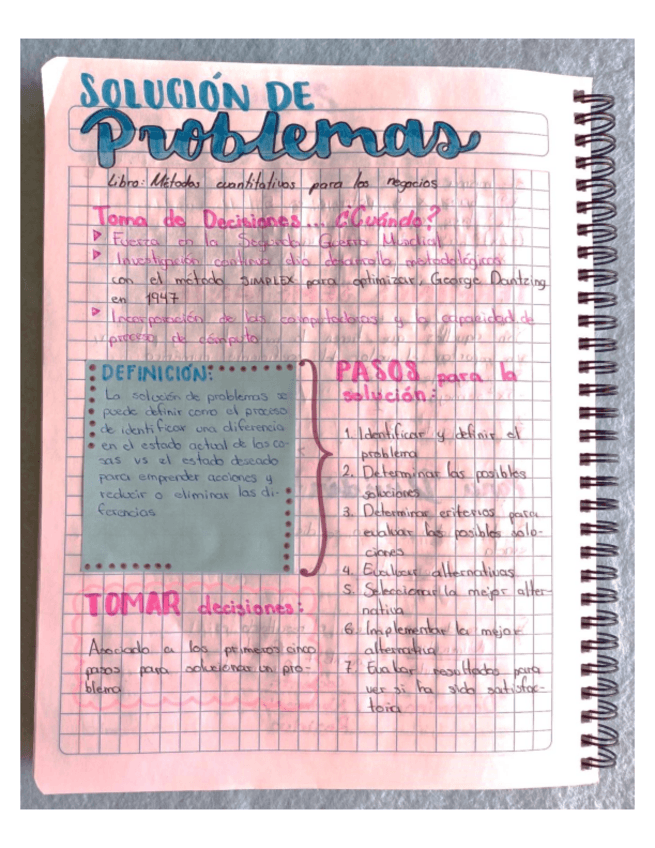 SOLUCIÓN DE
Problemas
Libro: Métodos cuantitativos para los negocios
Toma de Decisiones... ¿Cuándo?
Fuerza en la Segunda Guerra Mundial
Investigación continua dio desarrollo metodológicos
con el método SIMPLEX para optimizar, George Dantzing
en 1947
Incorporación de las computadoras y la capacidad de
proceso de cómputo
DEFINICIÓN:
La solución de problemas se
puede definir como el proceso
de identificar una diferencia
en el estado actual de las co-
sas vs el estado deseado
para emprender acciones y
reducir o eliminar las di-
ferencias
TOMAR decisiones:
Asociado a los primeros cinco
pasos para solucionar un pro-
blema
PASOS para la
solución:
1. Identificar y definir el
problema
2. Determinar las posibles
soluciones
3. Determinar criterios para
evaluar las posibles solu-
ciones
4. Evaluar alternativas
5. Seleccionar la mejor alter-
nativa
6. Implementar la mejor
alternativa
7. Evaluar resultados para
ver si ha sido satisfac-
toria